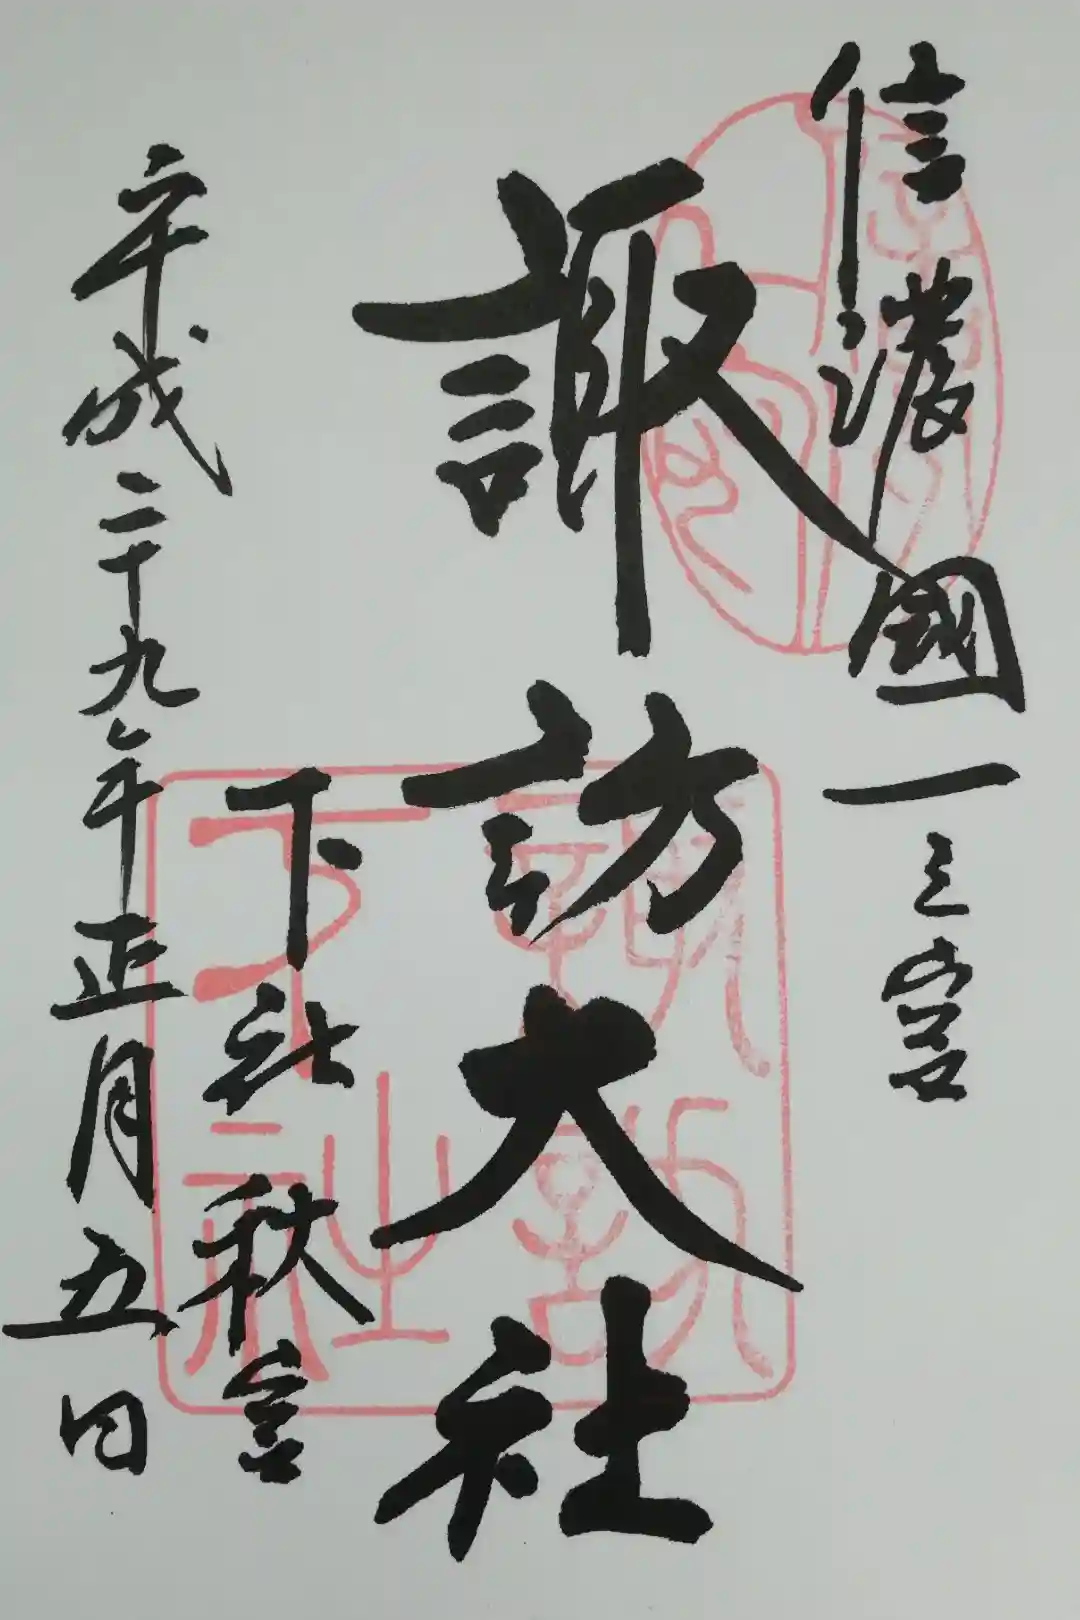 信濃國一之宮
諏訪大社
下社秋宮
平成二十九年正月五日
諏訪
下社